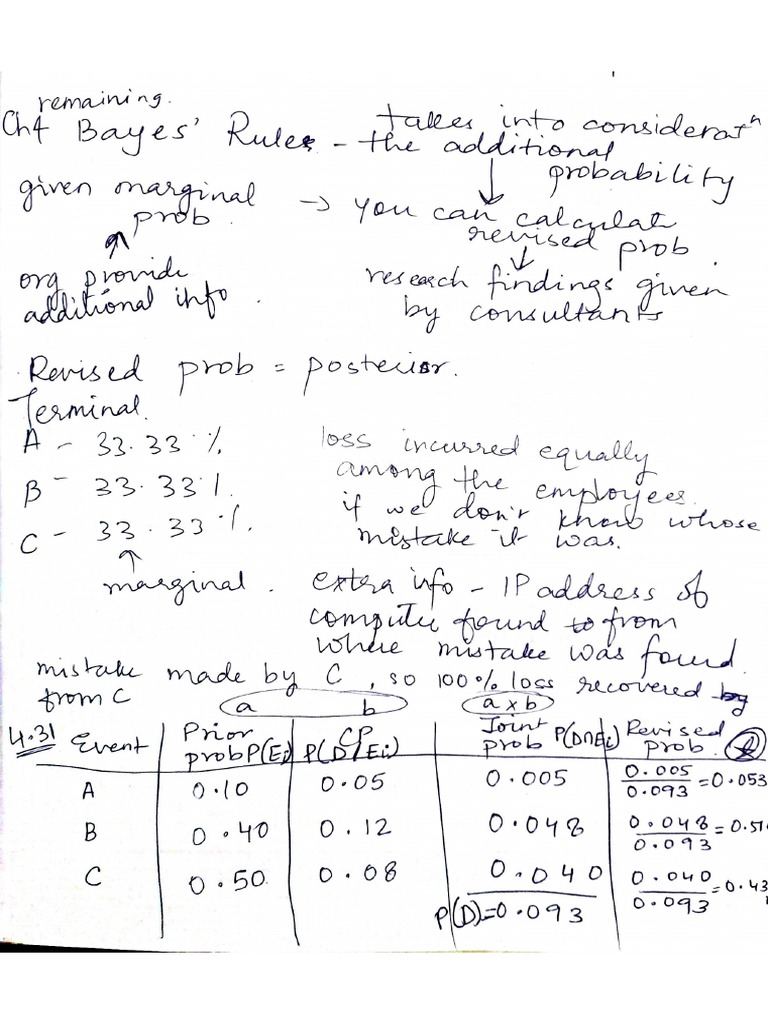 remaining.
Ch4 Bayes' Rule - takes into considerath
the additional
probability
given marginal
prob
→ you can calculate
revised prob.
org provide
additional info.
research findings given
by consultants
Revised prob = posterior.
Terminal.
A - 33.33 %
B - 33.33 %.
C - 33.33 %.
marginal.
loss incurred equally
among the
employees.
if we don't know whose
mistake it was.
extra info - IP address of
computer found to from
where mistake was found.
mistake made by C, so 100% loss recovered by
from C
a b a x b
4.31 Event Prior prob P(Ei) CP P(D/Ei) Joint prob P(D∩Ei) Revised prob.
A 0.10 0.05 0.005 0.005/0.093 = 0.053
B 0.40 0.12 0.048 0.048/0.093 = 0.51
C 0.50 0.08 0.040 0.040/0.093 = 0.43
P(D)=0.093